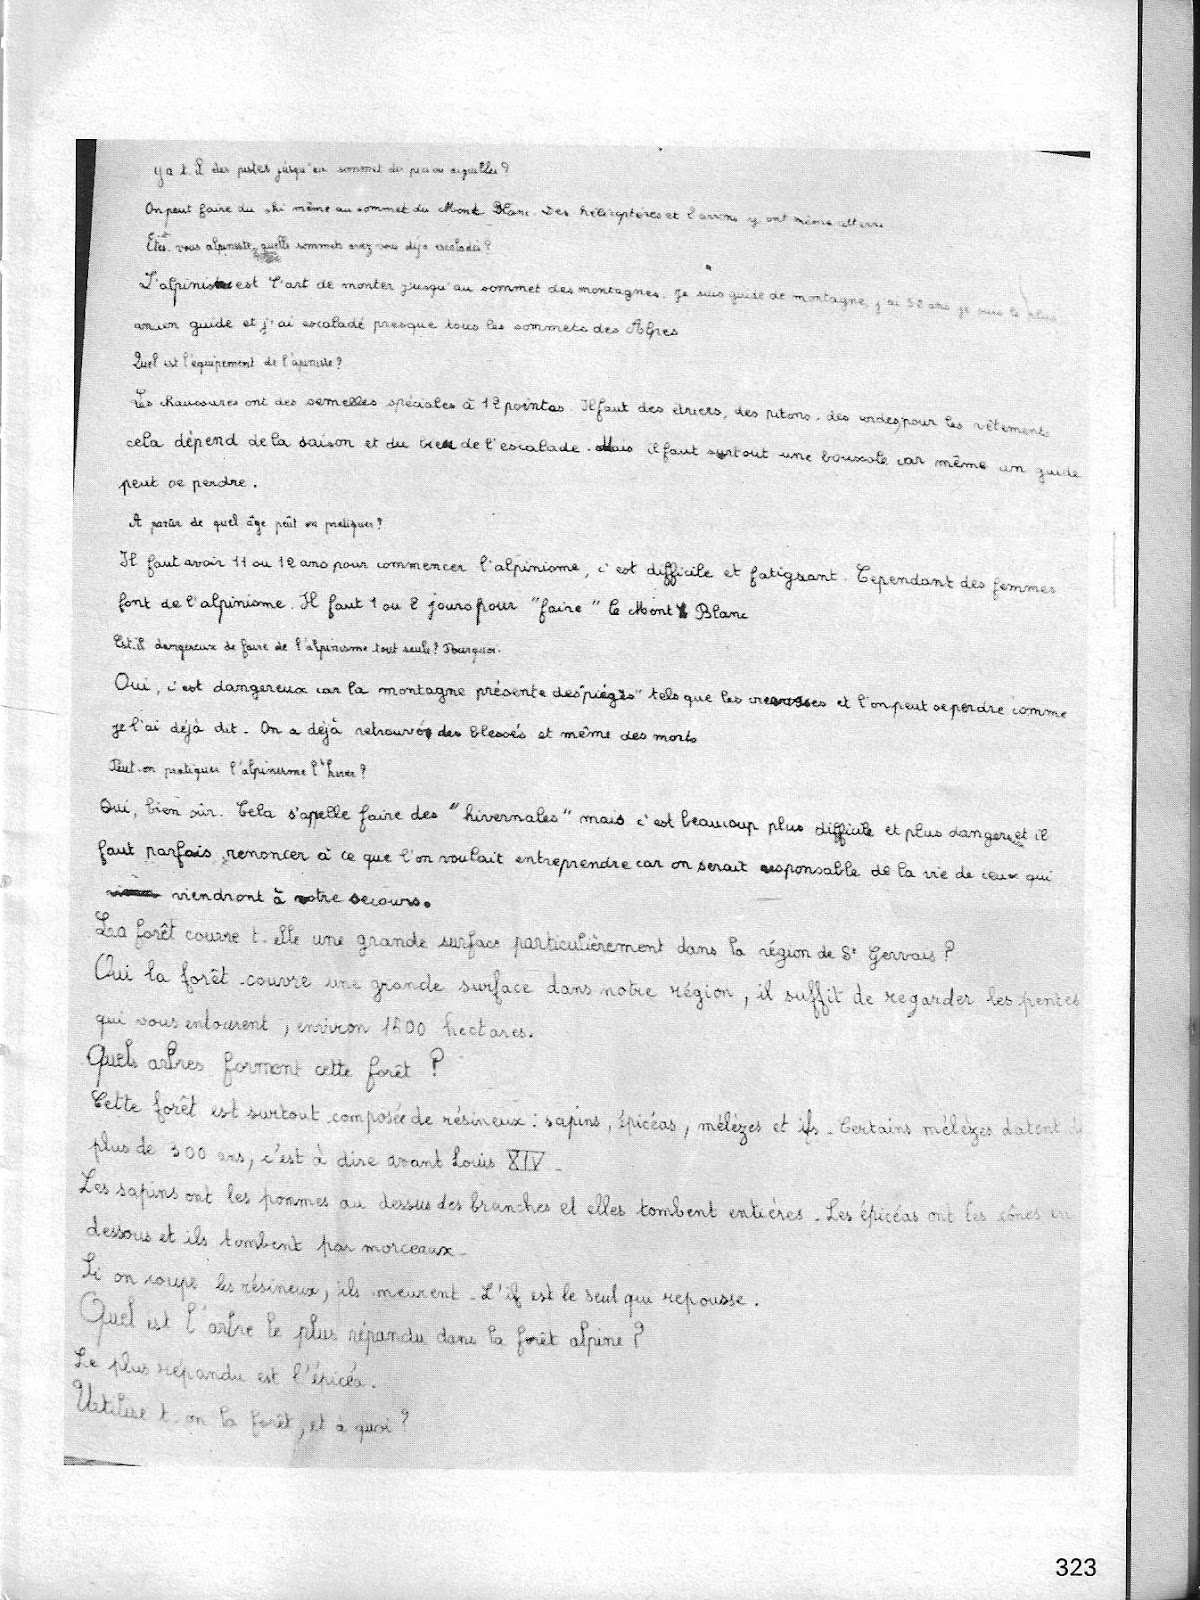 y a t. il des pistes jusqu'au sommet des pics ou aiguilles?
On peut faire du ski même au sommet du Mont Blanc. Des hélicoptères et l'avions y ont même atterri
Etes-vous alpiniste, quells sommets avez vous déjà escaladés?
L'alpinisme est l'art de monter jusqu'au sommet des montagnes. Je suis guide de montagne, j'ai 52 ans je suis le plus
ancien guide et j'ai escaladé presque tous les sommets des Alpes
Quel est l'équipement de l'apiniste?
Les chaussures ont des semelles spéciales à 12 pointes. Il faut des étriers, des pitons, des cordes, pour les vêtements
cela dépend de la saison et du lieu de l'escalade. Mais il faut surtout une boussole car même un guide
peut se perdre.
A partir de quel âge peût on pratiquer?
Il faut avoir 11 ou 12 ans pour commencer l'alpinisme, c'est difficile et fatigrant. Cependant des femmes
font de l'alpinisme. Il faut 1 ou 2 jours pour "faire" le Mont Blanc
Est-il dangereux de faire de l'alpinisme tout seule? Pourquoi.
Oui, c'est dangereux car la montagne présente des "pièges" tels que les crevasses et l'on peut se perdre comme
je l'ai déjà dit. On a déjà retrouvé des blessés et même des morts
Peut-on pratiquer l'alpinisme l'hiver?
Oui, bien sûr. Cela s'appelle faire des "hivernales" mais c'est beaucoup plus difficile et plus dangereux et il
faut parfois renoncer à ce que l'on voulait entreprendre car on serait responsable de la vie de ceux qui
viendront à votre secours.
La forêt couvre t-elle une grande surface particulièrement dans la région de St Gervais?
Oui la forêt couvre une grande surface dans notre région, il suffit de regarder les pentes
qui vous entourent, environ 1500 hectares.
Quels arbres forment cette forêt?
Cette forêt est surtout composée de résineux: sapins, épicéas, mélèzes et ifs. Certains mélèzes datent d
plus de 300 ans, c'est à dire avant Louis XIV.
Les sapins ont les pommes au dessus des branches et elles tombent entières. Les épicéas ont les cônes en
dessous et ils tombent par morceaux.
Si on coupe les résineux, ils meurent. L'if est le seul qui repousse.
Quel est l'arbre le plus répandu dans la forêt alpine?
Le plus répandu est l'épicéa.
Uutilise t-on la forêt, et à quoi?
323